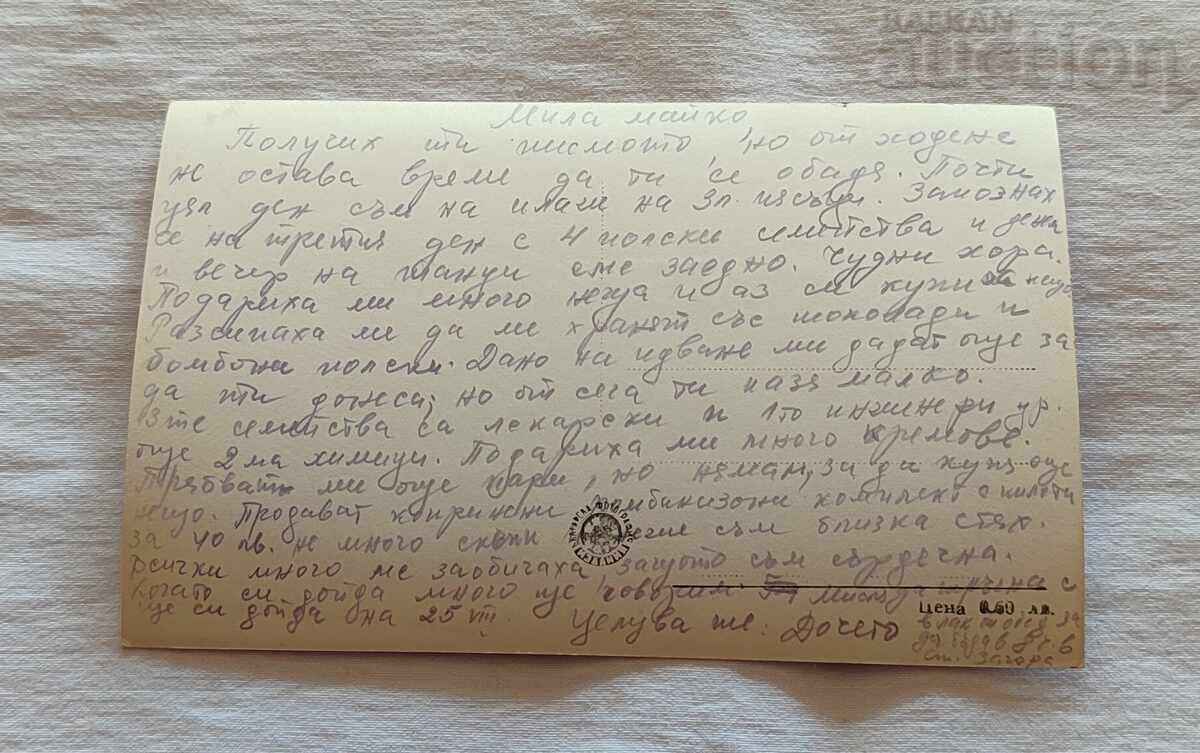 BALKAN
auction
Мила майко
Получих ти писмото, но от ходене
не остава време да ти се обадя. Почти
цял ден съм на плаж на Зл. пясъци. Запознах
се на третия ден с 4 полски семейства и деня
и вечер на танци сме заедно. Чудни хора.
Подариха ми много неща и аз си купих нещо
Разсипаха ме да ме хранят със шоколади и
бомбони полски. Дано на идване ми дадат още за
да ти донеса, но от сега ти пазя малко.
3те семейства са лекарски и 1то инженери др.
още 2ма химици. Подариха ми много кремове.
Трябват ми още пари, но нямам, за да купя още
нещо. Продават копринени комбинизони комплект с килоти
за 40 лв. не много скъпи съм близка с тях.
Всички много ме заобичаха, защото съм сърдечна.
Когато си дойда много ще говорим. Мисля да тръгна с
ще си дойда на 25 т. Целува те: Дочето
Цена 0.60 лв.
влак след за
да бъда в 8 ч. в
Ст. Загора